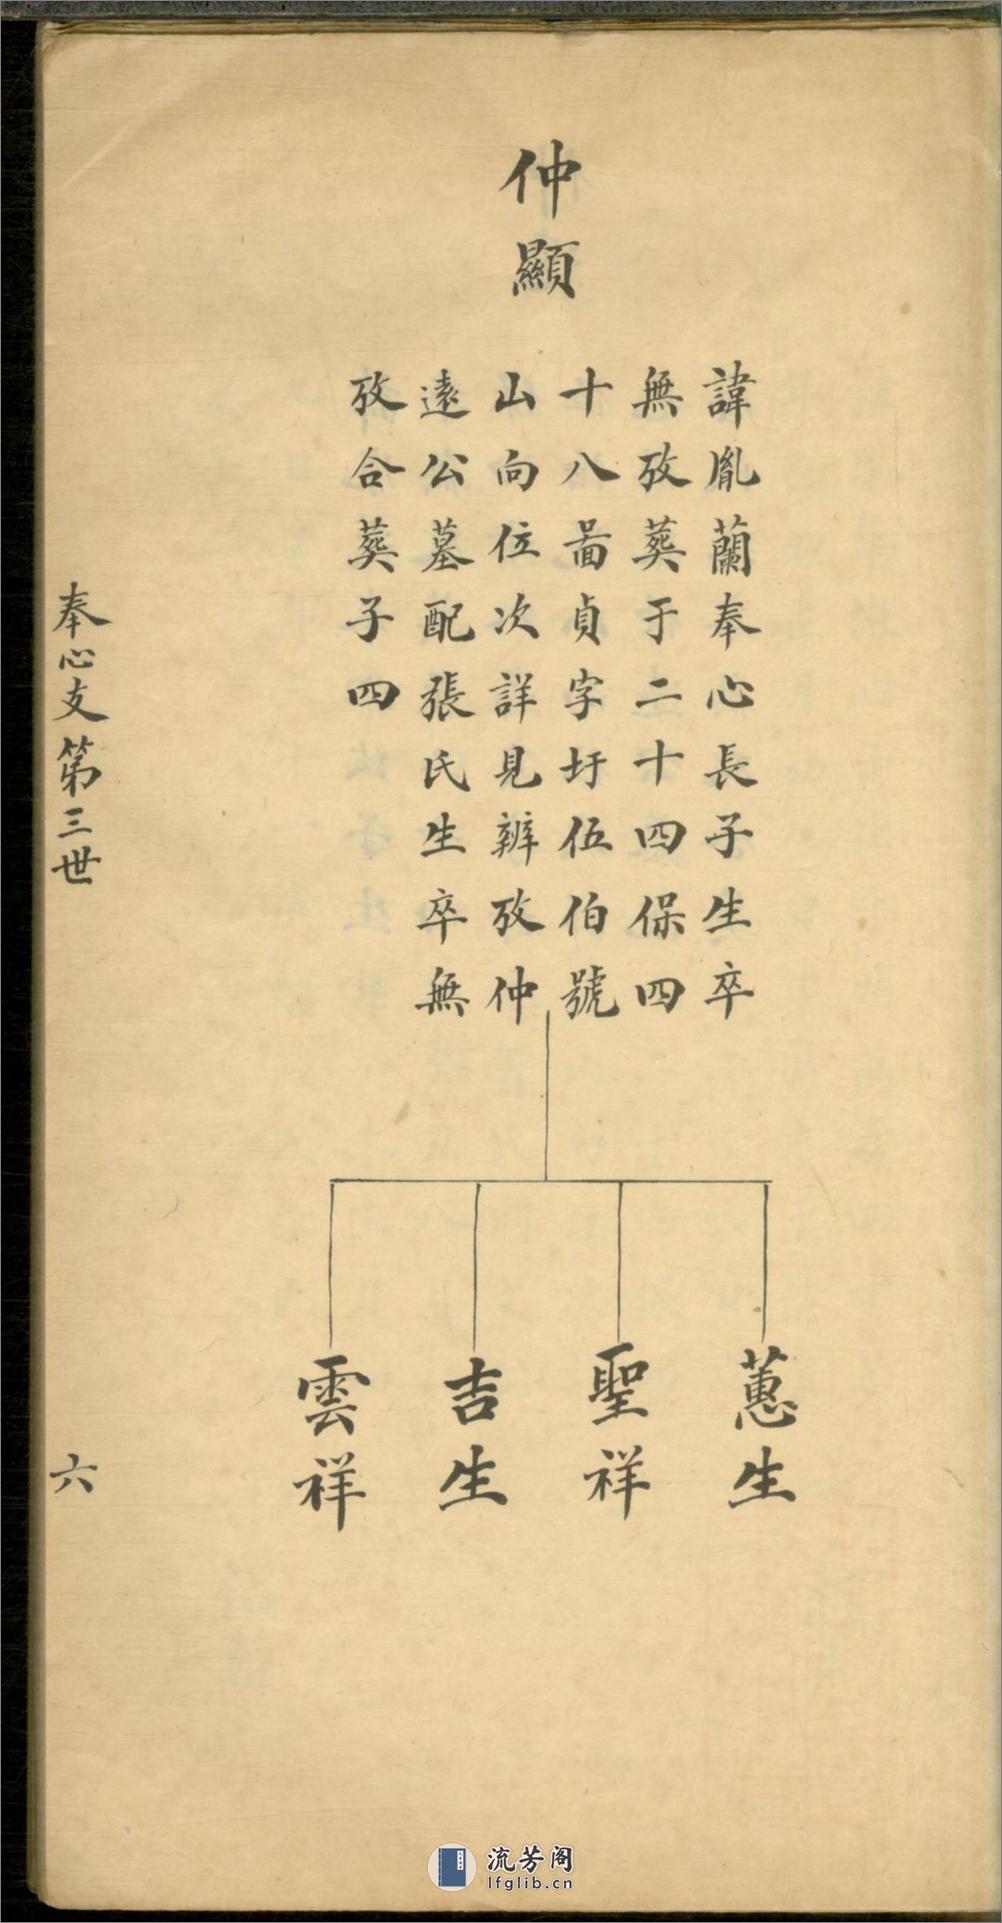 仲顯
諱胤蘭奉心長子生卒
無攷葬于二十四保四
十八啚貞字圩伍伯號
山向位次詳見辨攷仲
遠公墓配張氏生卒無
攷合葬子四
蕙生
聖祥
吉生
雲祥
奉心支第三世
六
流芳阁
lfglib.cn